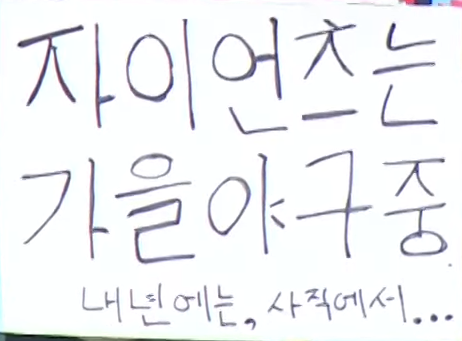 자이언츠는
가을야구중
내년에는, 사직에서...